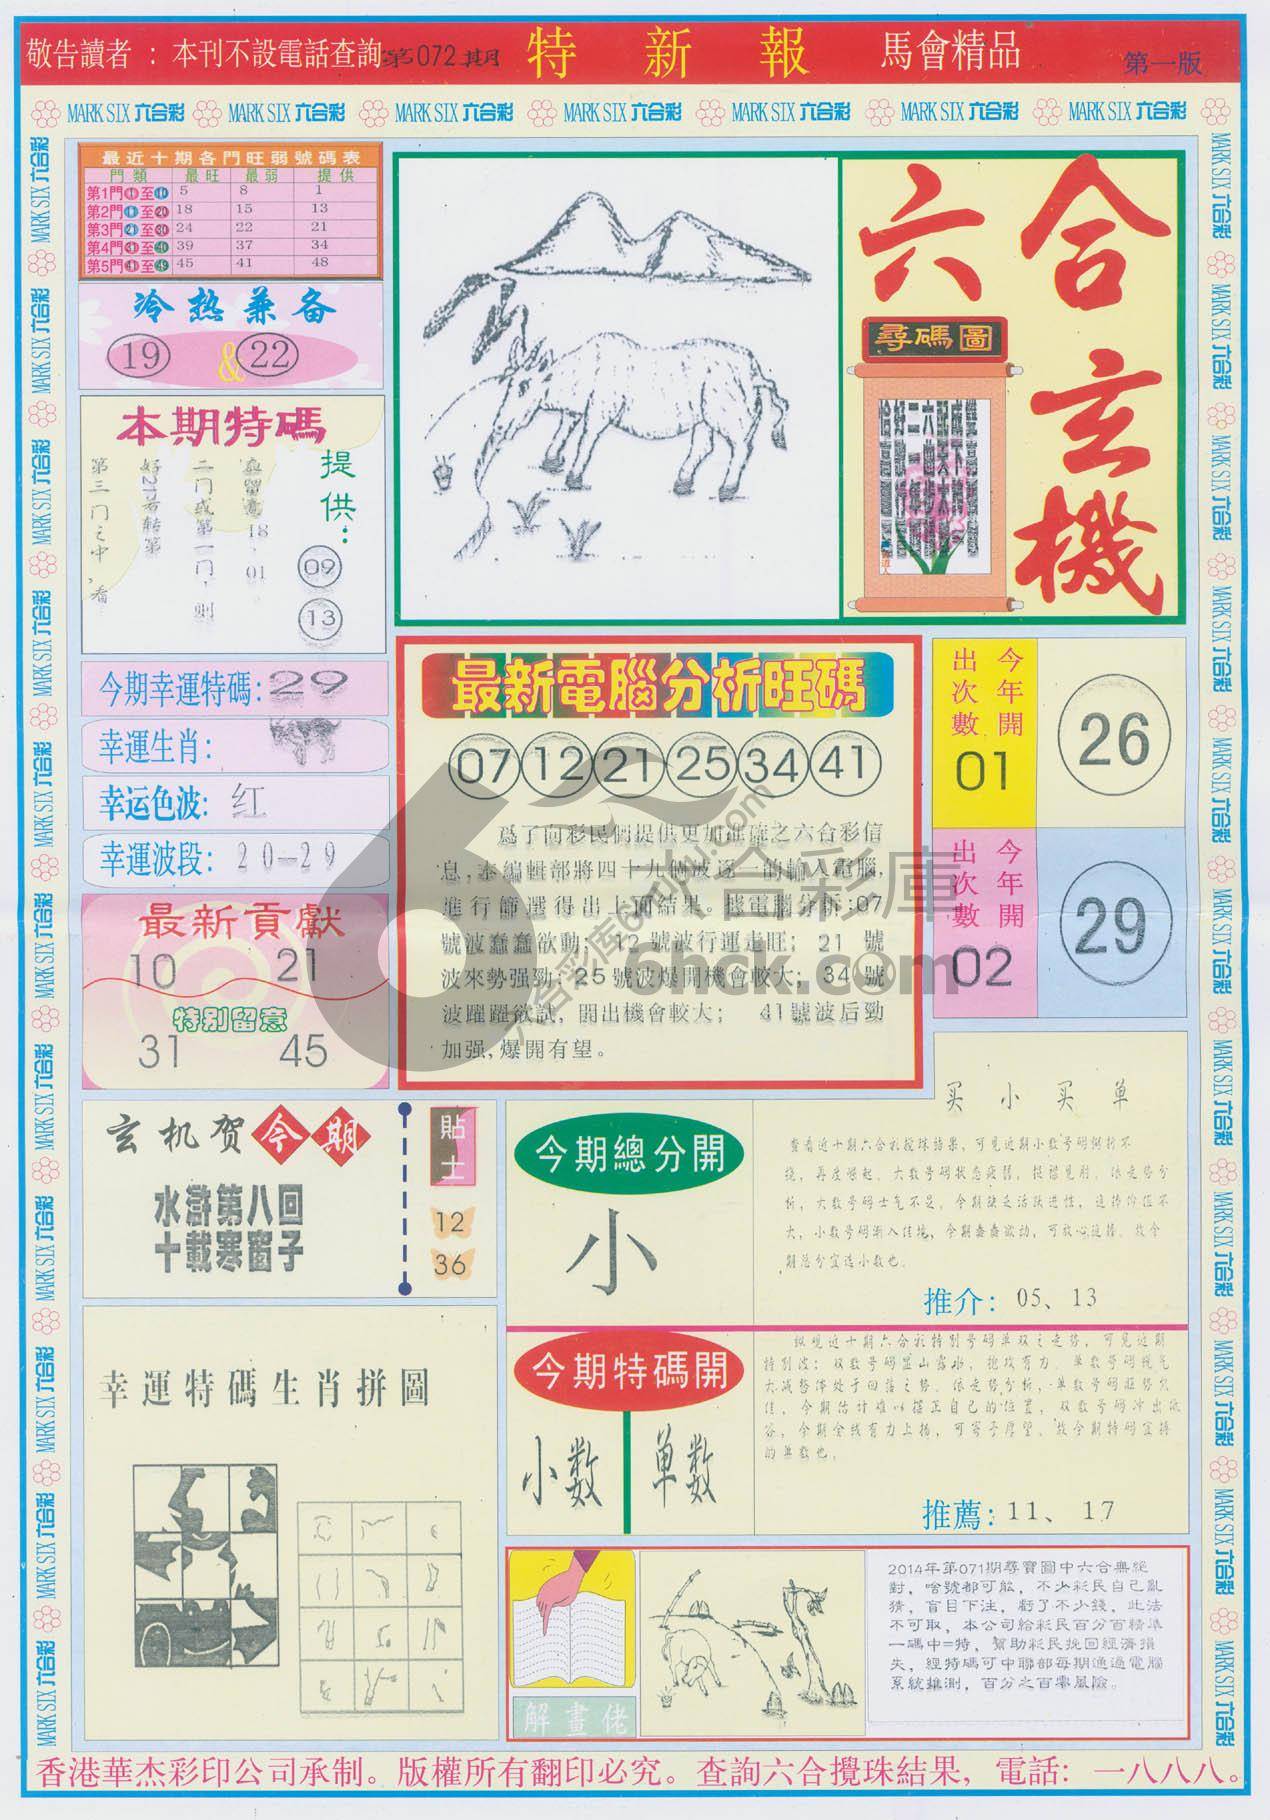 敬告讀者 ：本刊不設電話查詢 第072期 特新報 馬會精品 第一版
MARK SIX 六合彩 MARK SIX 六合彩 MARK SIX 六合彩 MARK SIX 六合彩 MARK SIX 六合彩 MARK SIX 六合彩 MARK SIX 六合彩
最近十期各門旺弱號碼表
門類 最旺 最弱 提供
第1門 1 至 10 5 8 1
第2門 11 至 20 18 15 13
第3門 21 至 30 24 22 21
第4門 31 至 40 39 37 34
第5門 41 至 49 45 41 48
冷热兼备
19 & 22
本期特碼
提供：
第三门之中，看
好21若转第
二门或第一门，则
18
01
09
13
今期幸運特碼:29
幸運生肖:
幸运色波: 红
幸運波段: 20—29
最新貢獻
10 21
特别留意
31 45
六合玄機
尋碼圖
最新電腦分析旺碼
07 12 21 25 34 41
爲了向彩民們提供更加準確之六合彩信
息,本編輯部將四十九個波逐一的輸入電腦,
進行篩選得出上面結果。據電腦分析:07
號波蠢蠢欲動; 12 號波行運走旺; 21 號
波來勢强勁; 25 號波爆開機會較大; 34 號
波躍躍欲試, 開出機會較大; 41號波后勁
加强,爆開有望。
今年開
出次數
01
26
今年開
出次數
02
29
六合彩庫
6hck.com
玄机贺今期
水滸第八回
十載寒窗子
貼士
12
36
今期總分開
小
买小买单
查看近十期六合彩搅珠结果，可见近期小数号码倒行不
挠，再度崛起，大数号码状态疲弱，捉襟见肘。依走势分
析，大数号码士气不足，今期缺乏活跃进性，
大，小数号码渐入佳境，今期蠢蠢欲动，可放心追择。故今
期总分宜选小数也。
推介: 05、13
今期特碼開
小数 单数
纵观近十期六合彩特别号码单双之走势，可见近期
特别波：双数号码显山露水，抢攻有力，单数号码锐气
大减整体处于回落之势。依走势分析，单数号码旺势欠
佳，今期估计难以摆正自己的位置，双数号码冲出低
谷，今期全线有力上扬，可寄予厚望。故今期特码宜择
的单数也。
推薦: 11、17
幸運特碼生肖拼圖
解畫佬
2014年第071期尋寶圖中六合無絕
對，啥號都可能，不少彩民自己亂
猜，盲目下注，虧了不少錢，此法
不可取，本公司給彩民百分百精準
一碼中=特，幫助彩民挽回經濟損
失，經特碼可中聯部每期通過電腦
系統推測，百分之百零風險。
香港華杰彩印公司承制。版權所有翻印必究。查詢六合攪珠結果，電話：一八八八。